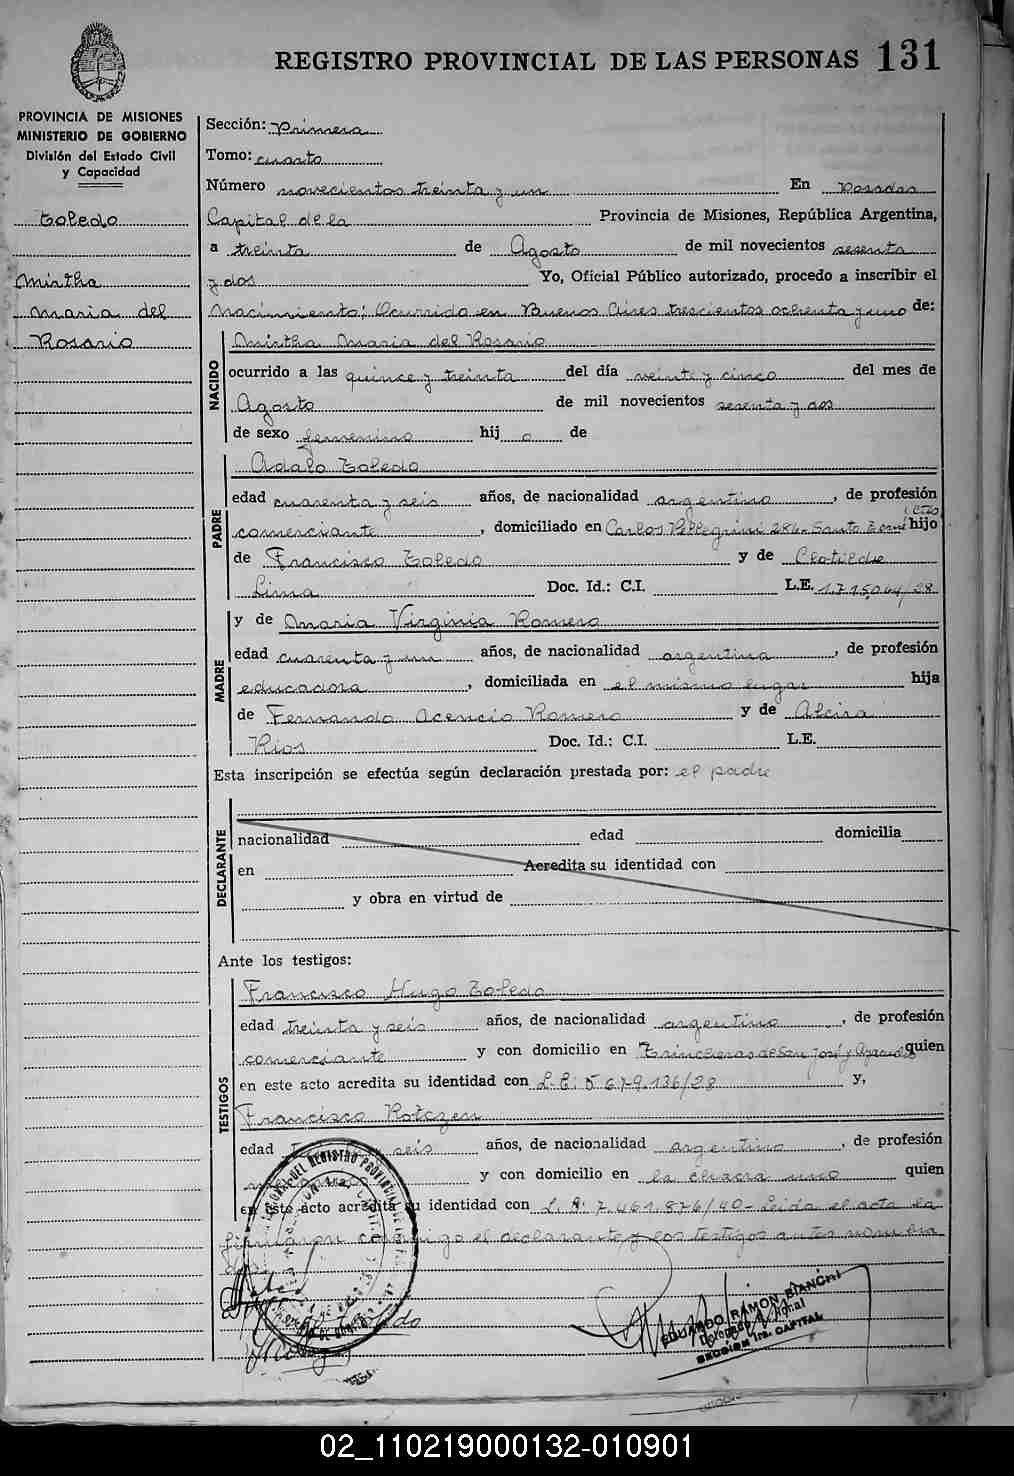 REGISTRO PROVINCIAL DE LAS PERSONAS 131
PROVINCIA DE MISIONES
MINISTERIO DE GOBIERNO
División del Estado Civil
y Capacidad
Toledo
Mirtha
Maria del
Rosario
Sección: Primera
Tomo: cuarto
Número novecientos treinta y un En Posadas
Capital de la Provincia de Misiones, República Argentina,
a treinta de Agosto de mil novecientos sesenta
y dos Yo, Oficial Público autorizado, procedo a inscribir el
Nacimiento; Ocurrido en Buenos Aires trescientos ochenta y uno de:
NACIDO
Mirtha Maria del Rosario
ocurrido a las quince y treinta del día veinte y cinco del mes de
Agosto de mil novecientos sesenta y dos
de sexo femenino hij a de
PADRE
Adalo Toledo
edad cuarenta y seis años, de nacionalidad argentino, de profesión
comerciante, domiciliado en Carlos Pellegrini 286 - Santo Tomé (Ctes) hijo
de Francisco Toledo y de Clotilde
Lima Doc. Id.: C.I. L.E. 1.715.044/28
MADRE
y de Maria Virginia Romero
edad cuarenta y un años, de nacionalidad argentina, de profesión
educadora, domiciliada en el mismo lugar hija
de Fernando Acencio Romero y de Alcira
Rios Doc. Id.: C.I. L.E.
Esta inscripción se efectúa según declaración prestada por: el padre
DECLARANTE
nacionalidad edad domicilia
en Acredita su identidad con
y obra en virtud de
Ante los testigos:
TESTIGOS
Francisco Hugo Toledo
edad treinta y seis años, de nacionalidad argentino, de profesión
comerciante y con domicilio en Trincheras de San José y Ayacucho quien
en este acto acredita su identidad con L.E: 5.679.136/28 y,
Francisco Rotczen
edad seis años, de nacionalidad argentino, de profesión
y con domicilio en la chacra uno quien
en este acto acredita su identidad con L.E: 7.461.876/40 - Leida el acta la
firmaron conmigo el declarante y los testigos antes nombra
EDUARDO RAMON BIANCHI
SECCION 1ra. CAPITAL
02_110219000132-010901